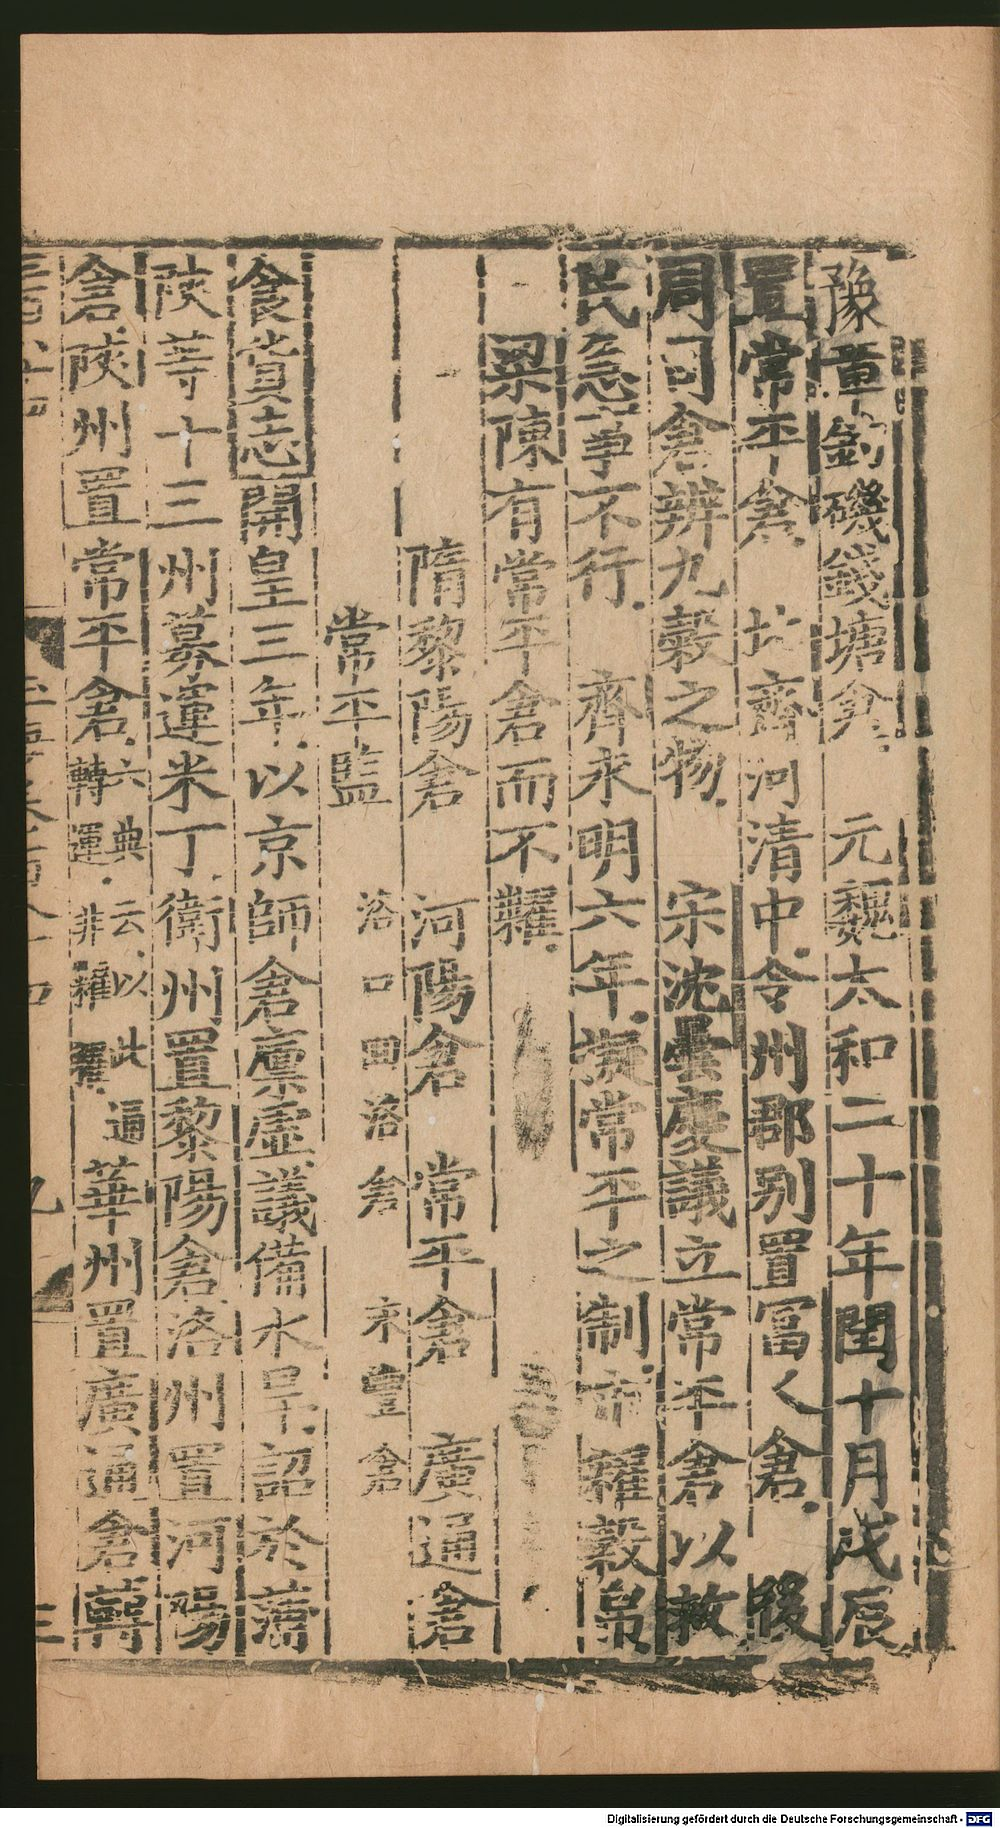 豫章釣磯錢塘倉 元魏太和二十年閏十月戊辰
置常平倉 北齊河清中令州郡别置冨人倉 後
周司倉辨九穀之物 宋沈曇慶議立常平倉以救
民急事不行 齊永明六年議常平之制市糴穀帛
梁陳有常平倉而不糴
隋黎陽倉 河陽倉 常平倉 廣通倉
常平監 洛口回洛倉 永豐倉
食貨志開皇三年以京師倉廩虚議備水旱詔於蒲
陝等十三州募運米丁衛州置黎陽倉洛州置河陽
倉陝州置常平倉六典云以此轉運非糴糶華州置廣通倉轉
九
三
Digitalisierung gefördert durch die Deutsche Forschungsgemeinschaft - DFG